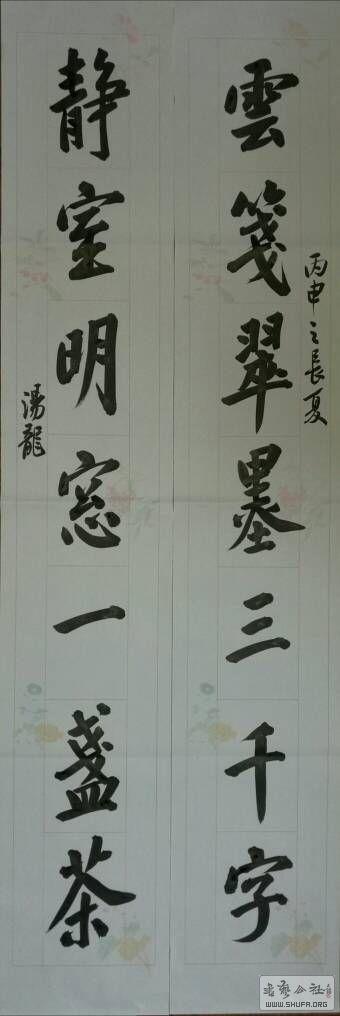 丙申之長夏
雲箋翠墨三千字
靜室明窓一盞茶
湯龍
書藝公社
WWW.SHUFA.ORG